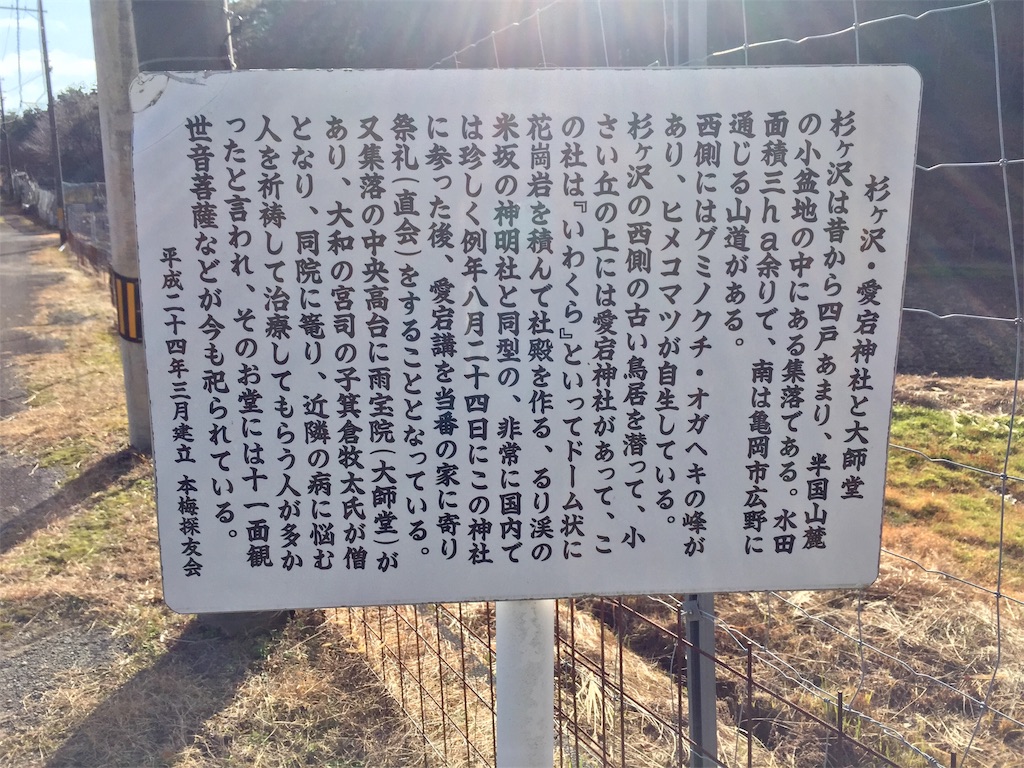 杉ヶ沢・愛宕神社と大師堂
杉ヶ沢は昔から四戸あまり、半国山麓
の小盆地の中にある集落である。水田
面積三ｈａ余りで、南は亀岡市広野に
通じる山道がある。
西側にはグミノクチ・オガヘキの峰が
あり、ヒメコマツが自生している。
杉ヶ沢の西側の古い鳥居を潜って、小
さい丘の上には愛宕神社があって、こ
の社は『いわくら』といってドーム状に
花崗岩を積んで社殿を作る、るり渓の
米坂の神明社と同型の、非常に国内で
は珍しく例年八月二十四日にこの神社
に参った後、愛宕講を当番の家に寄り
祭礼（直会）をすることとなっている。
又集落の中央高台に雨宝院（大師堂）が
あり、大和の宮司の子箕倉牧太氏が僧
となり、同院に篭り、近隣の病に悩む
人を祈祷して治療してもらう人が多か
ったと言われ、そのお堂には十一面観
世音菩薩などが今も祀られている。
平成二十四年三月建立　本梅探友会